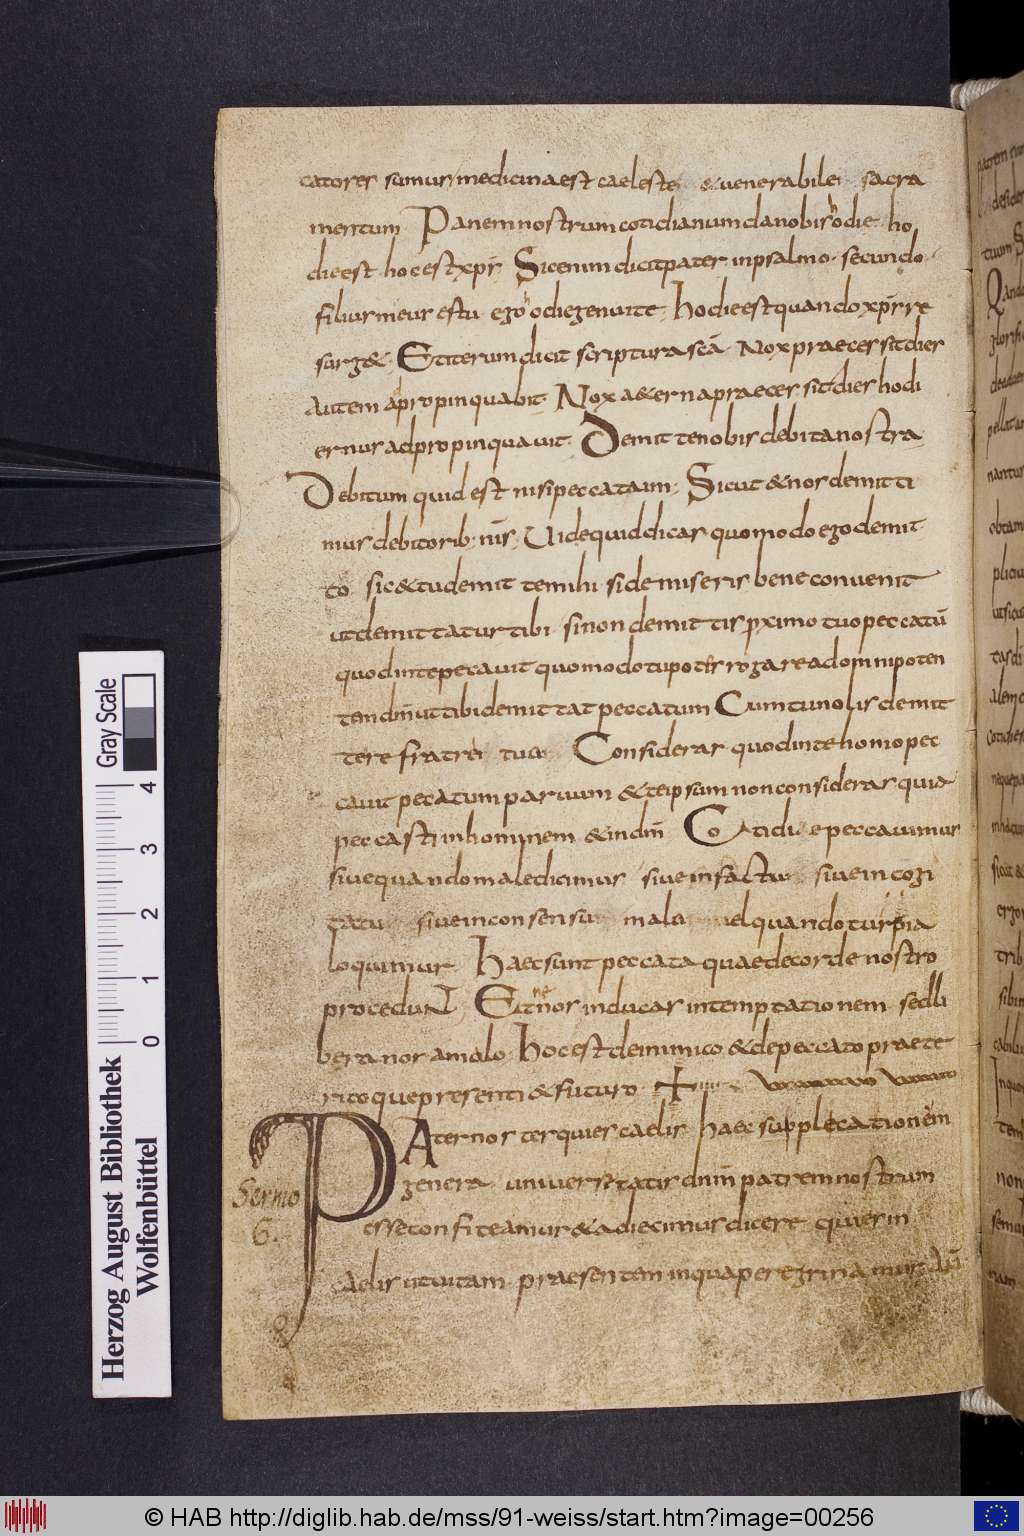 catores sumus medicina est caeleste & uenerabile sacra
mentum Panem nostrum cotidianum da nobis hodie ho
die est hoc est xpi Sic enim dicit pater in psalmo secundo
filius meus es tu ego hodie genui te hodie est quando xps re
surg& Et iterum dicit scriptura sca Nox praecessit dies
autem apropinquabit Nox aeterna praecessit dies hodi
ernus adpropinquauit Demitte nobis debita nostra
Debitum quid est nisi peccatum Sicut & nos demitti
mus debitorib nris Uide quid dicas quomodo ego demit
to sic & tu demitte mihi side miseris bene conuenit
ut demittatur tibi si non demittis pximo tuo peccatu
quod in te peccauit quomodo tu poter rogare ad omnipoten
tem dm ut tibi demittat peccatum Cum tu nolis demit
tere fratri tuo Consideras quod in te homo pec
cauit pecatum paruum & te ipsum non consideras quia
peccasti in hominem & in dm Cotidie peccauimus
siue quando maledicimus siue in factu siue in cogi
tatu siue in consensu malu uel quando turpia
loquimur Haec sunt peccata quae de corde nostro
procedunt Et ne nos inducas in temptationem sed li
bera nos a malo hoc est de inimico & de peccato praete
rito que presenti & futuro
PAter noster qui es caelis haec supplecationem
genera uniuersitatis dnm patrem nostrum
esse confiteamur & adiecimus dicere qui es in
caelis ut uitam praesentem in qua peregrinamur
Sermo
6.
Gray Scale
0 1 2 3 4
Herzog August Bibliothek
Wolfenbüttel
© HAB http://diglib.hab.de/mss/91-weiss/start.htm?image=00256